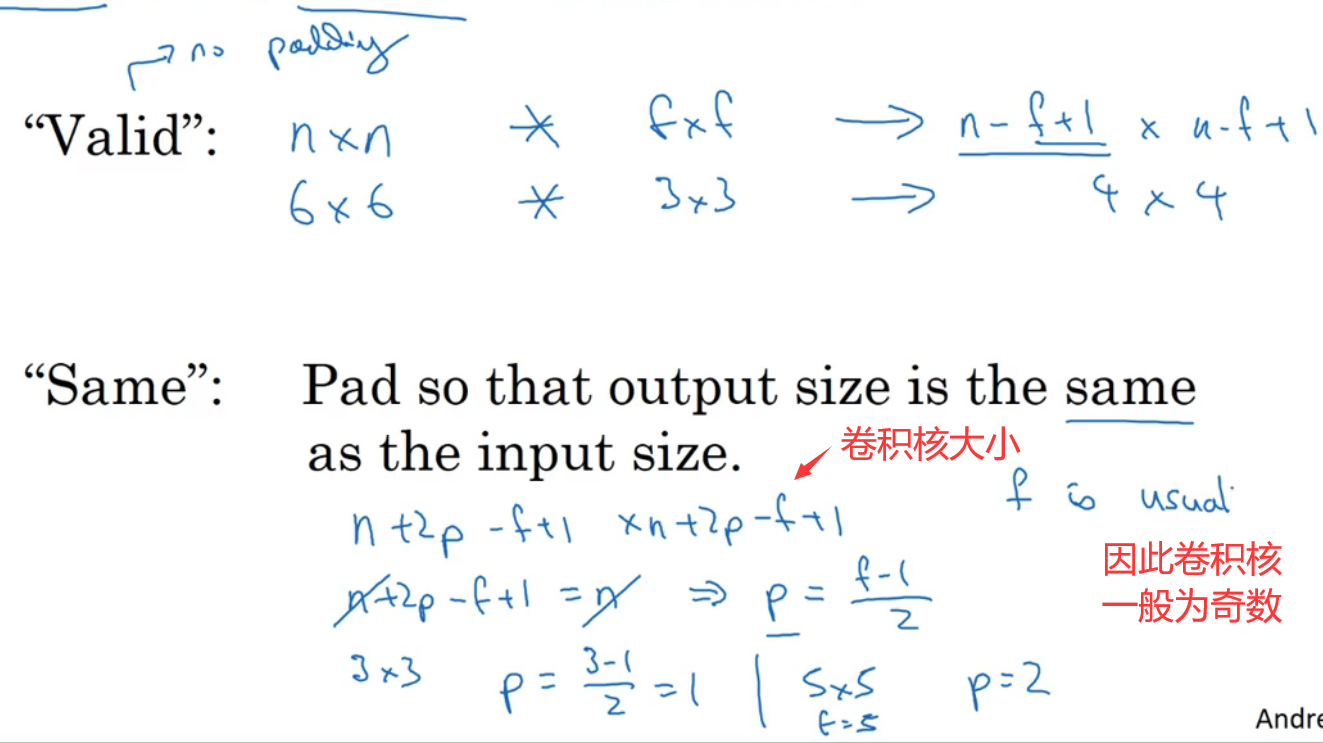 no padding
“Valid”: n×n * f×f → n-f+1 × n-f+1
6×6 * 3×3 → 4×4
“Same”: Pad so that output size is the same
as the input size.
卷积核大小
f is usual
n+2p-f+1 ×n+2p-f+1
因此卷积核
一般为奇数
n+2p-f+1 = n ⇒ p = (f-1)/2
3×3 p = (3-1)/2 = 1 | 5×5 p=2
f=5
Andre